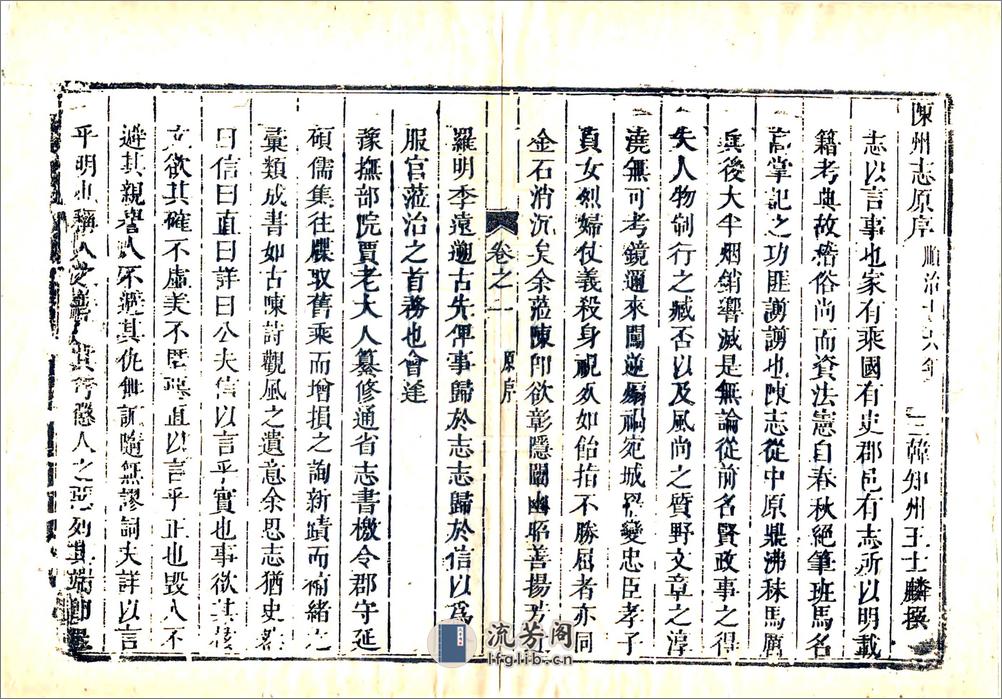 陳州志原序 順治十六年 三韓知州王士麟撰
志以言事也家有乘國有史郡邑有志所以明載
籍考典故稽俗尚而資法憲自春秋絕筆班馬名
高掌記之功匪謭謭也陳志從中原鼎沸秣馬厲
兵後大半烟銷響滅是無論從前名賢政事之得
失人物制行之臧否以及風尚之質野文章之淳
澆無可考鏡邇來闖逆煽禍宛城 變忠臣孝子
貞女烈婦仗義殺身視 如飴指不勝屈者亦同
金石消沉矣余蒞陳即欲彰隱闡幽昭善揚芳
卷之一 原序
羅明李遠邇古先俾事歸於志志歸於信以為
服官蒞治之首務也會逢
豫撫部院賈老大人纂修通省志書檄令郡守延
碩儒集往牒取舊乘而增損之詢新蹟而補緒之
彙類成書如古陳詩觀風之遺意余思志猶史
曰信曰直曰詳曰公夫信以言乎實也事欲其核
文欲其確不虛美不 惡直以言乎正也毀人不
避其親譽人不避其仇無詭隨無謬詞夫詳以言
平明也稱人之善 其 隱人之惡列其端
流芳阁
lfglib.cn